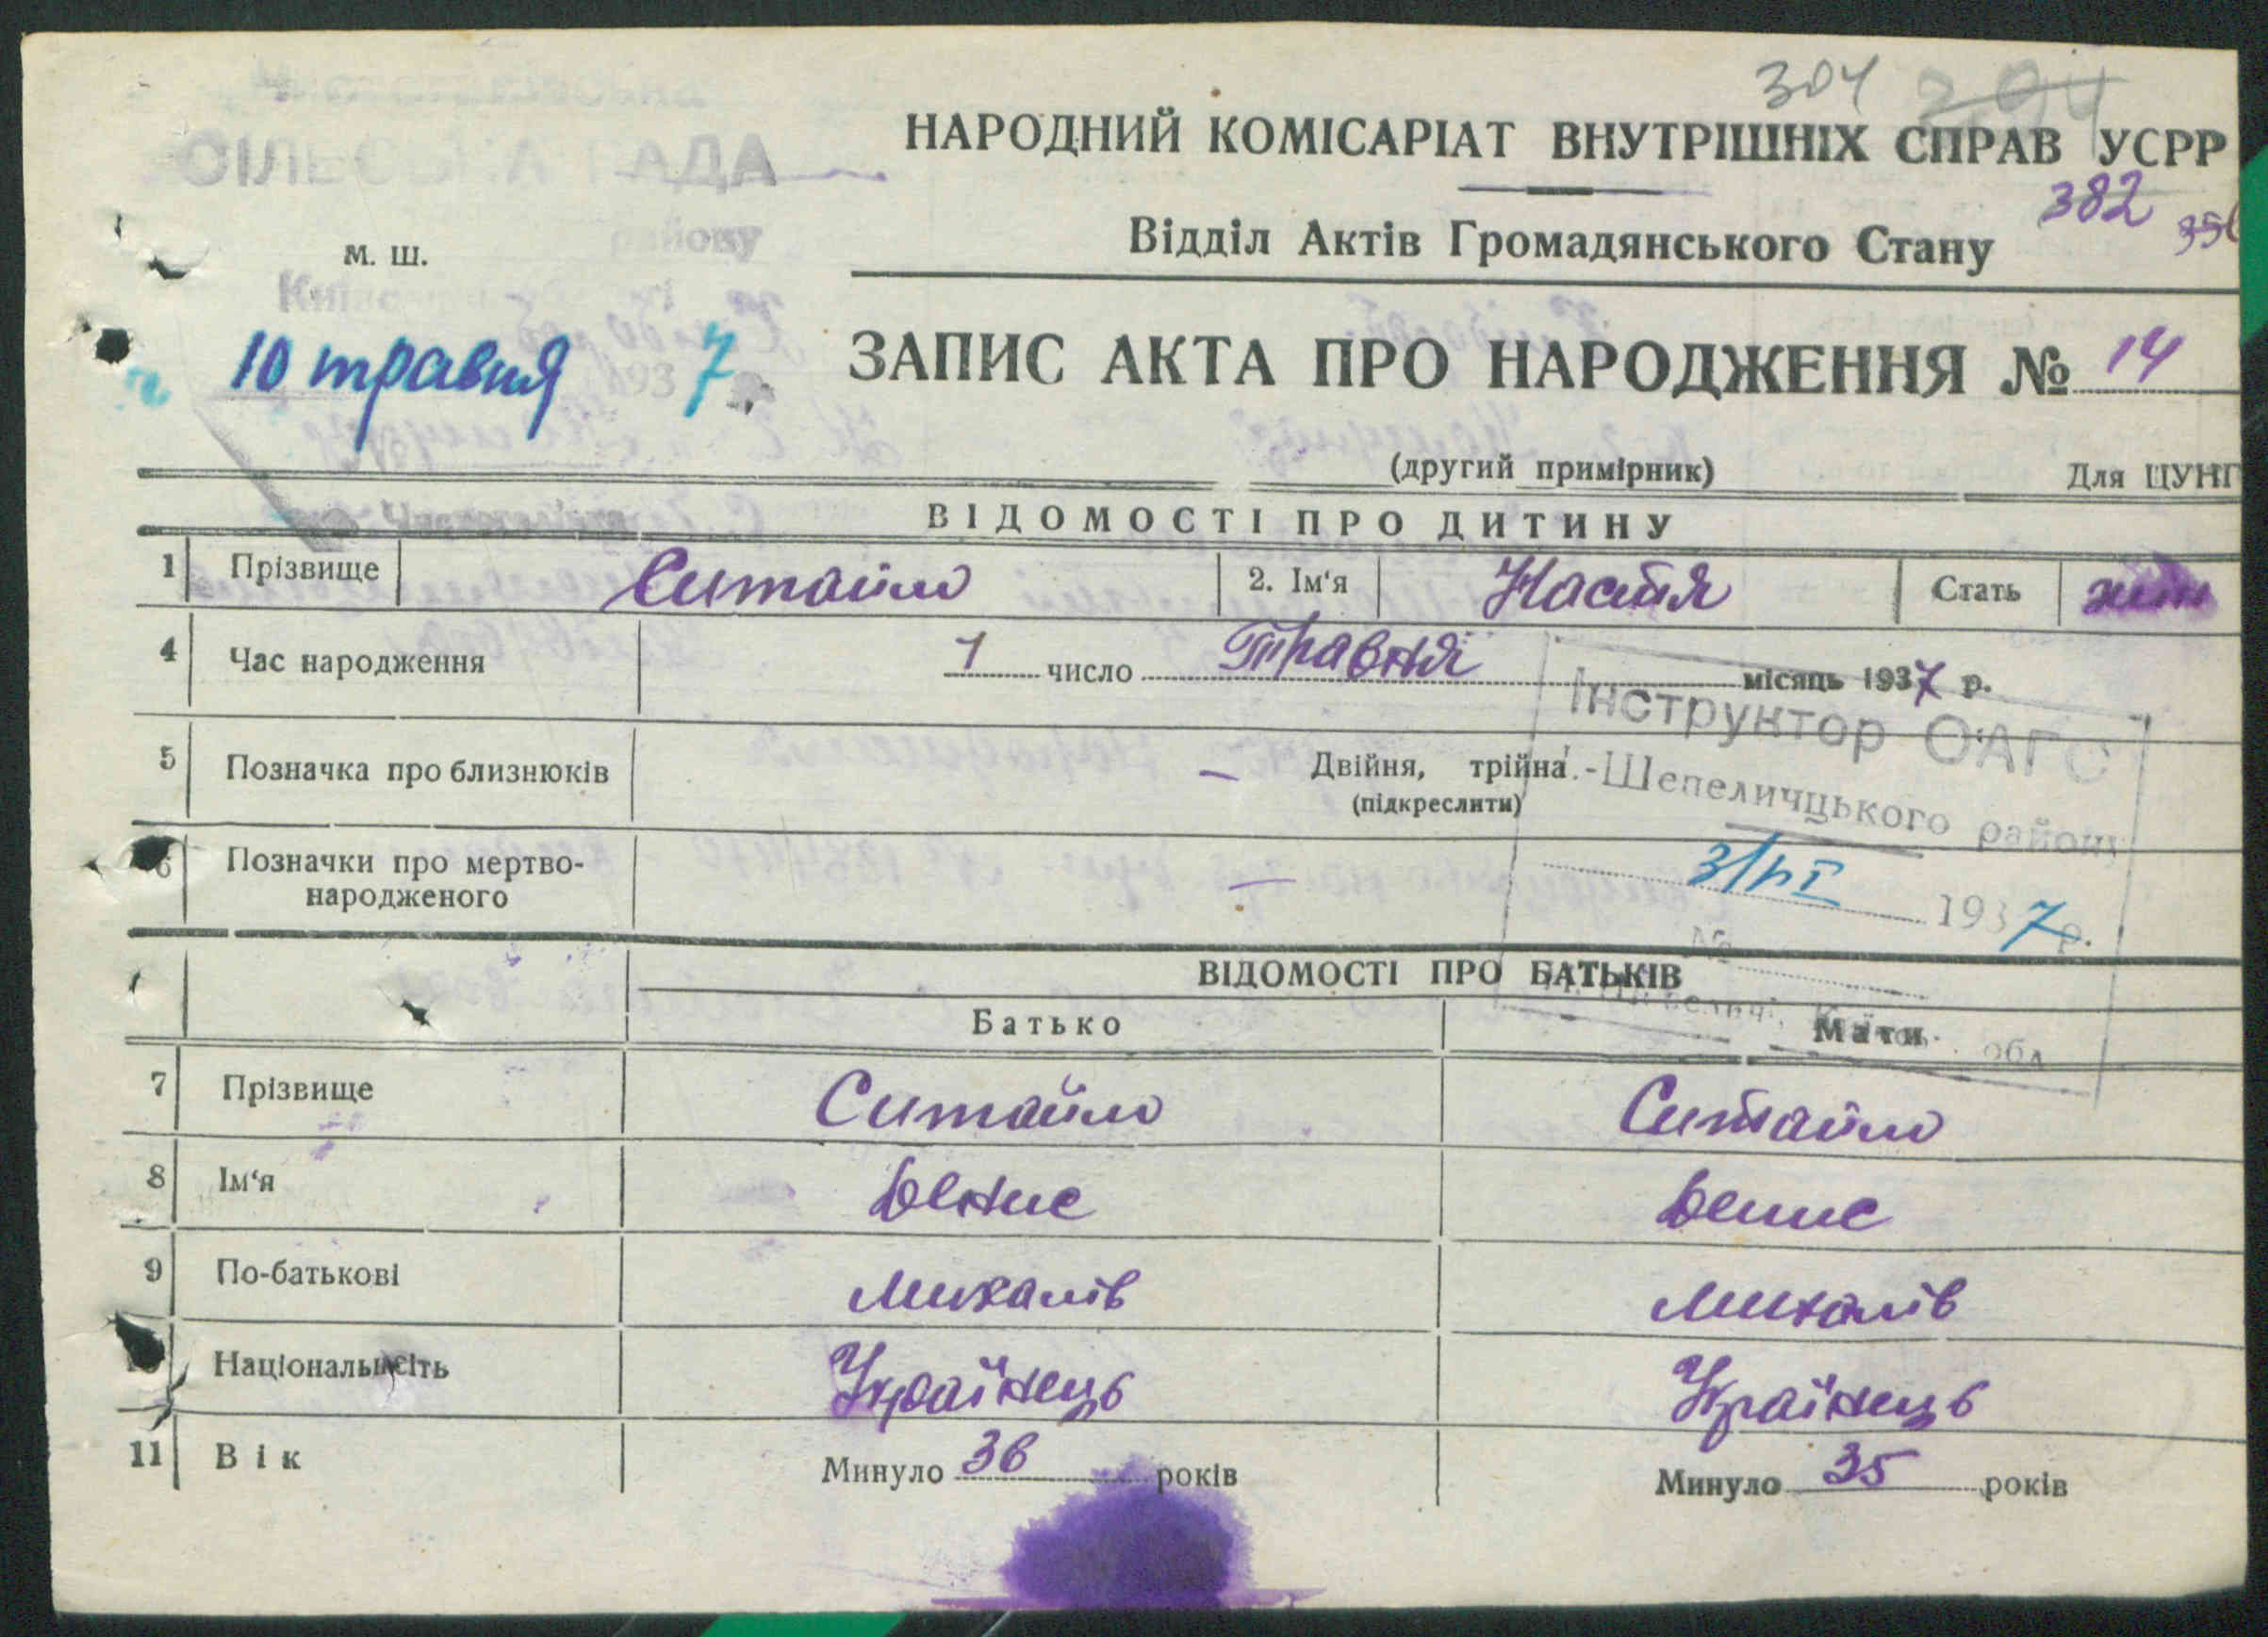 304 294
НАРОДНИЙ КОМІСАРІАТ ВНУТРІШНІХ СПРАВ УСРР
СІЛЬСЬКА РАДА
382
району
м. ш.
Відділ Актів Громадянського Стану
10 травня 1937
ЗАПИС АКТА ПРО НАРОДЖЕННЯ № 14
(другий примірник)
Для ЦУНГ
ВІДОМОСТІ ПРО ДИТИНУ
1 Прізвище Ситайло 2. Ім‘я Настя Стать жін
4 Час народження 1 число Травня місяць 1937 р.
Інструктор ОАГС
5 Позначка про близнюків — Двійня, трійня.
(підкреслити)
-Шепеличцького району
6 Позначки про мертво-
народженого —
3/VI 1937 р.
№
ВІДОМОСТІ ПРО БАТЬКІВ
Батько Мати
обл
7 Прізвище Ситайло Ситайло
8 Ім‘я Денис Денис
9 По-батькові Михалів Михалів
Національність Українець Українець
11 Вік Минуло 36 років Минуло 35 років